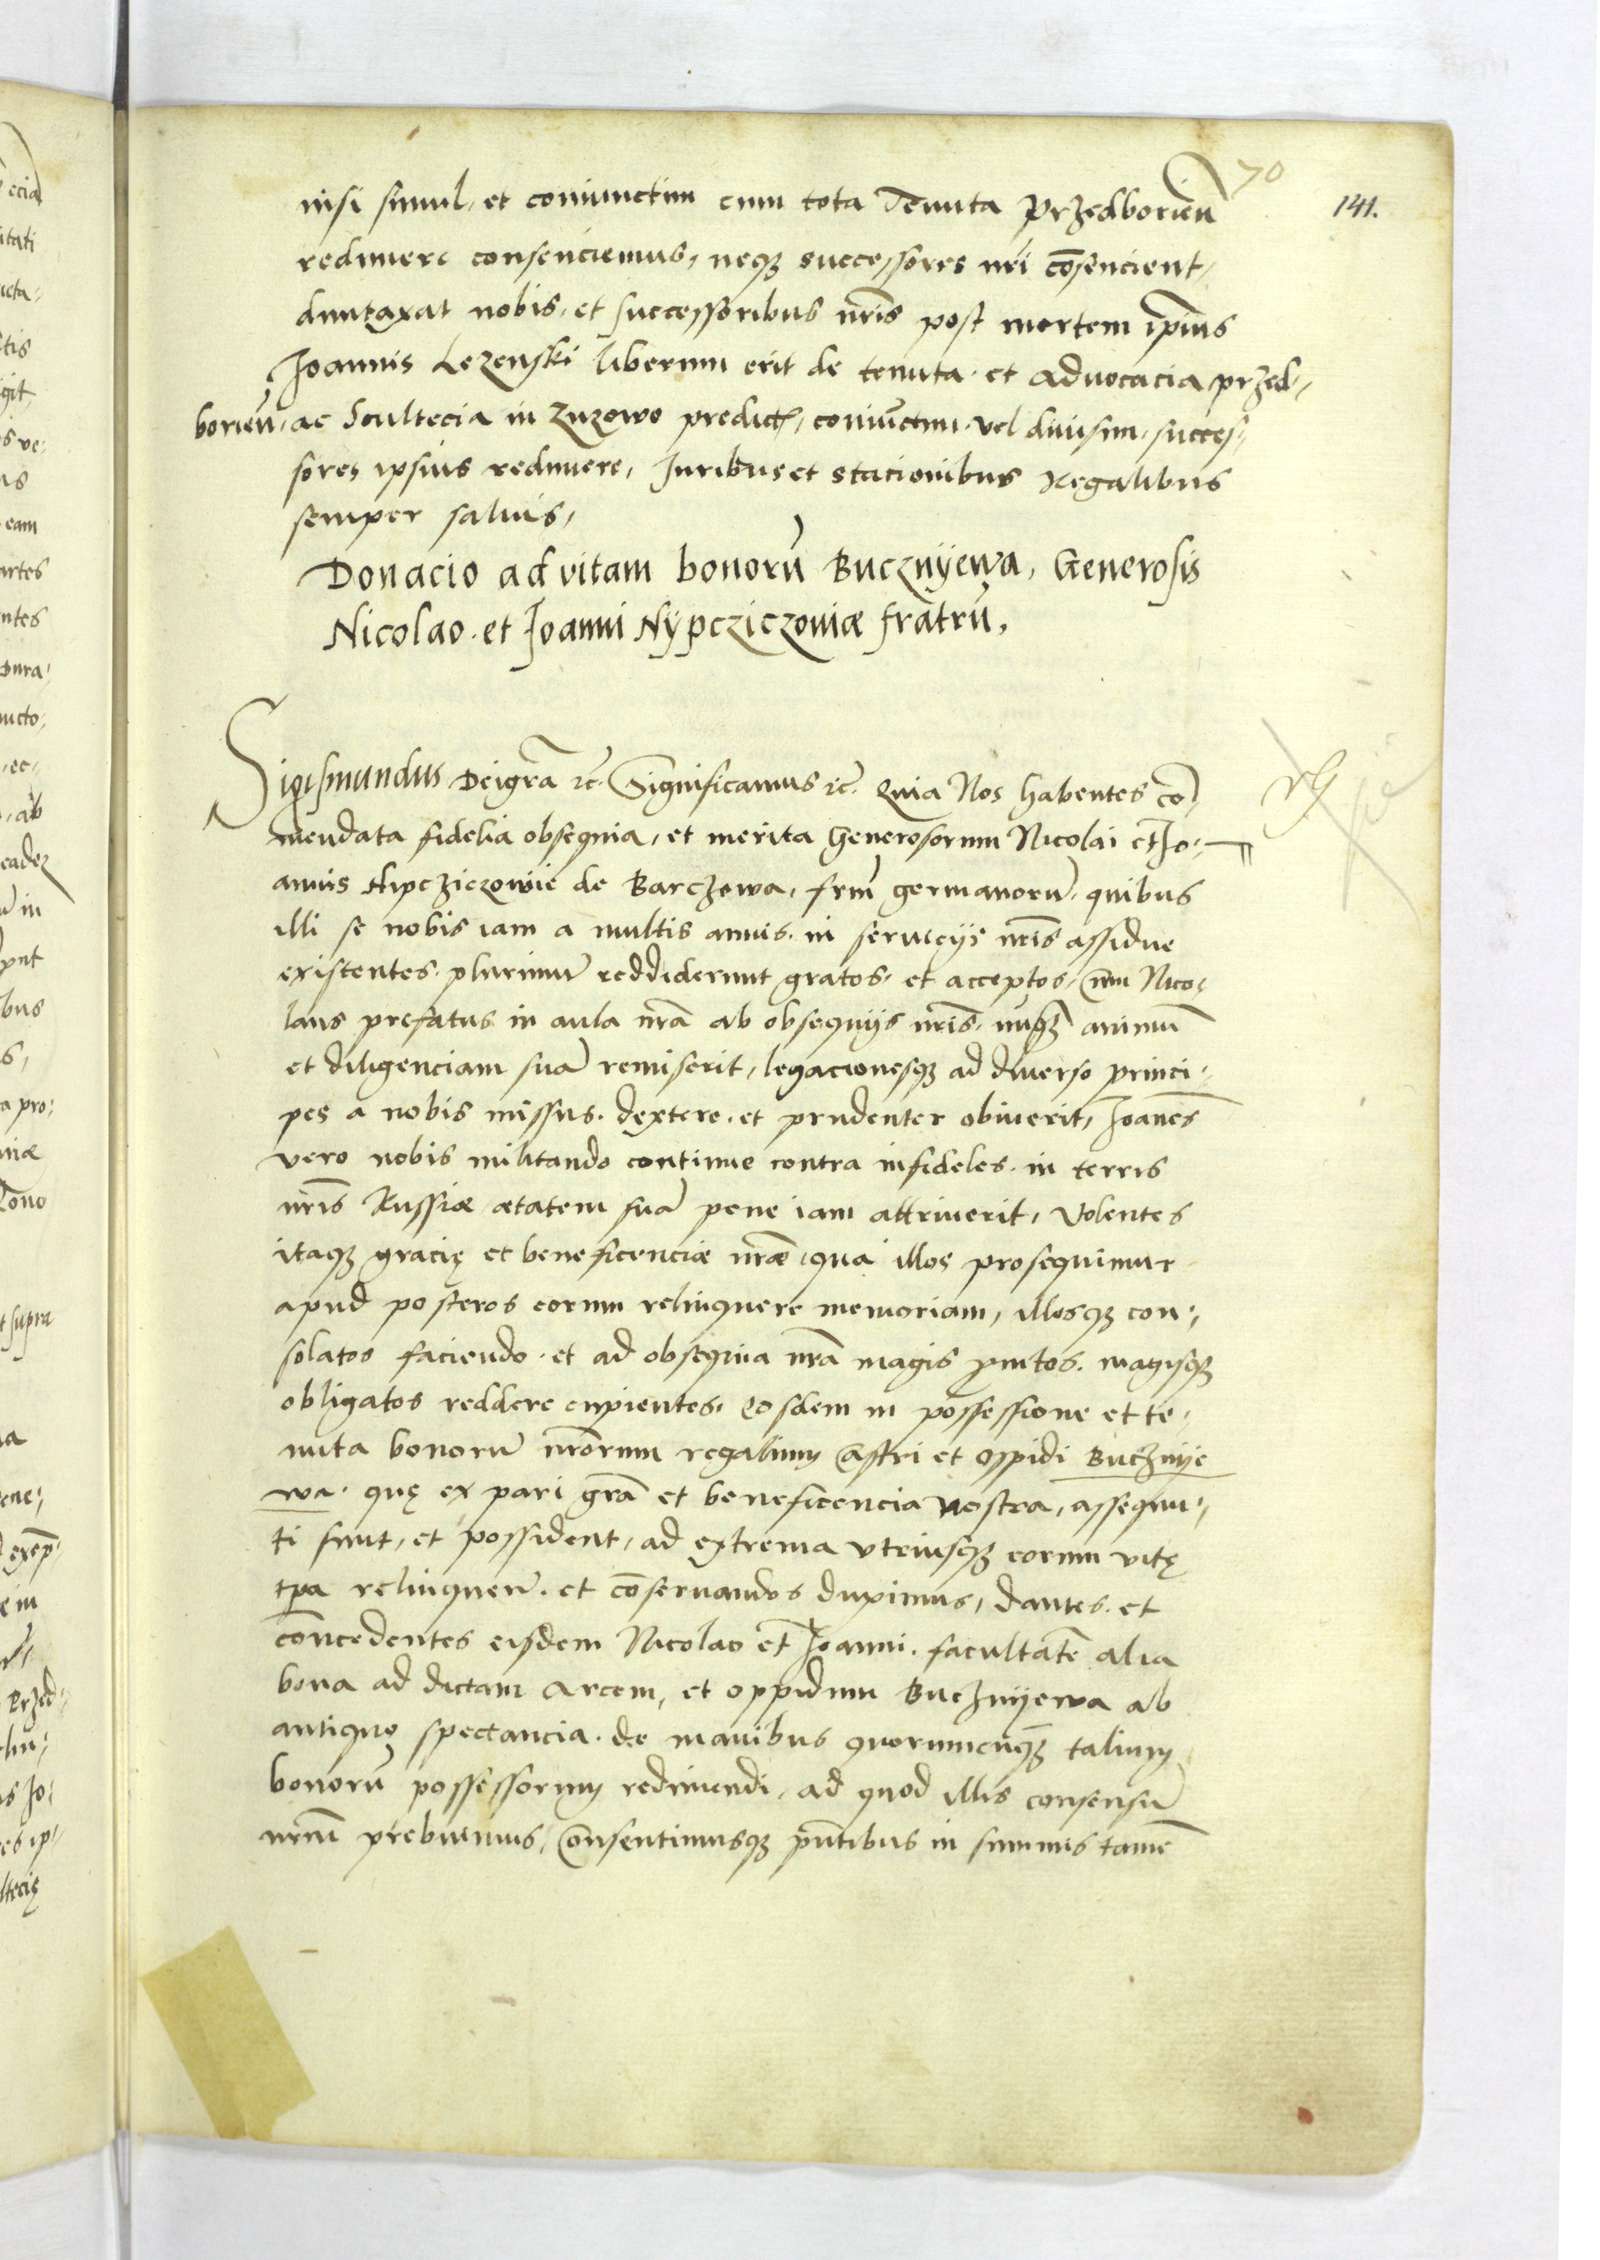 70
141.
nisi simul, et coniunctim cum tota Tenuta Przedborien̄
redimere consenciemus, neqȝ successores nr̄i cōsencient,
duntaxat nobis, et successoribus nr̄is post mortem ip̄ius
Joannis Lezenski liberum erit de tenuta et aduocacia przed-
borien̄, ac Scultecia in Zuzowo predict, coniūctim vel diuisim, succes-
sores ipsius redimere, Juribus et stacionibus Regalibus
semper saluis,
Donacio ad vitam bonorū Bucznijewa, Generosis
Nicolao et Joanni Nypcziczoviæ fratrū,
Sigismundus Dei gr̄a ⁊c̄. Significamus ⁊c̄. Quia Nos habentes cō-
mendata fidelia obsequia, et merita Generosorum Nicolai et Jo-
annis Nipcziczowie de Barczowa, frm̄ germanorū, quibus
illi se nobis iam a multis annis in seruicijs nr̄is assidue
existentes plurimū reddiderunt gratos et acceptos, Cum Nico-
laus prefatus in aula nr̄a ab obsequijs nr̄is nūqȝ animū
et diligenciam suā remiserit, legacionesqȝ ad diuerso princi-
pes a nobis missus dextere et prudenter obiuerit, Joanēs
vero nobis militando continue contra infideles in terris
nr̄is Russiæ ætatem suā pene iam attriuerit, Volentes
itaqȝ gracię et beneficenciæ nr̄æ qua illos prosequimur
apud posteros eorum relinquere memoriam, illosqȝ con-
solatos faciendo et ad obsequia nr̄a magis promtos magisqȝ
obligatos reddere cupientes, Eosdem in possessione et te-
nuta bonorū nr̄orum regalium Castri et Oppidi Bucznije
wa quę ex pari gr̄a et beneficencia nostra, assequu-
ti sunt, et possident, ad extrema vtriusqȝ eorum vitę
tp̄a relinquen̄ et cōseruandos duximus, dantes et
concedentes eisdem Nicolao et Joanni facultatē alia
bona ad dictam Arcem, et oppidum Bucznijewa ab
antiquo spectancia de manibus quorumcūqȝ talium
bonorū possessorum redimendi, ad quod illis consensū
nr̄um prebuimus, Consentimusqȝ pn̄tibus in summis tamē